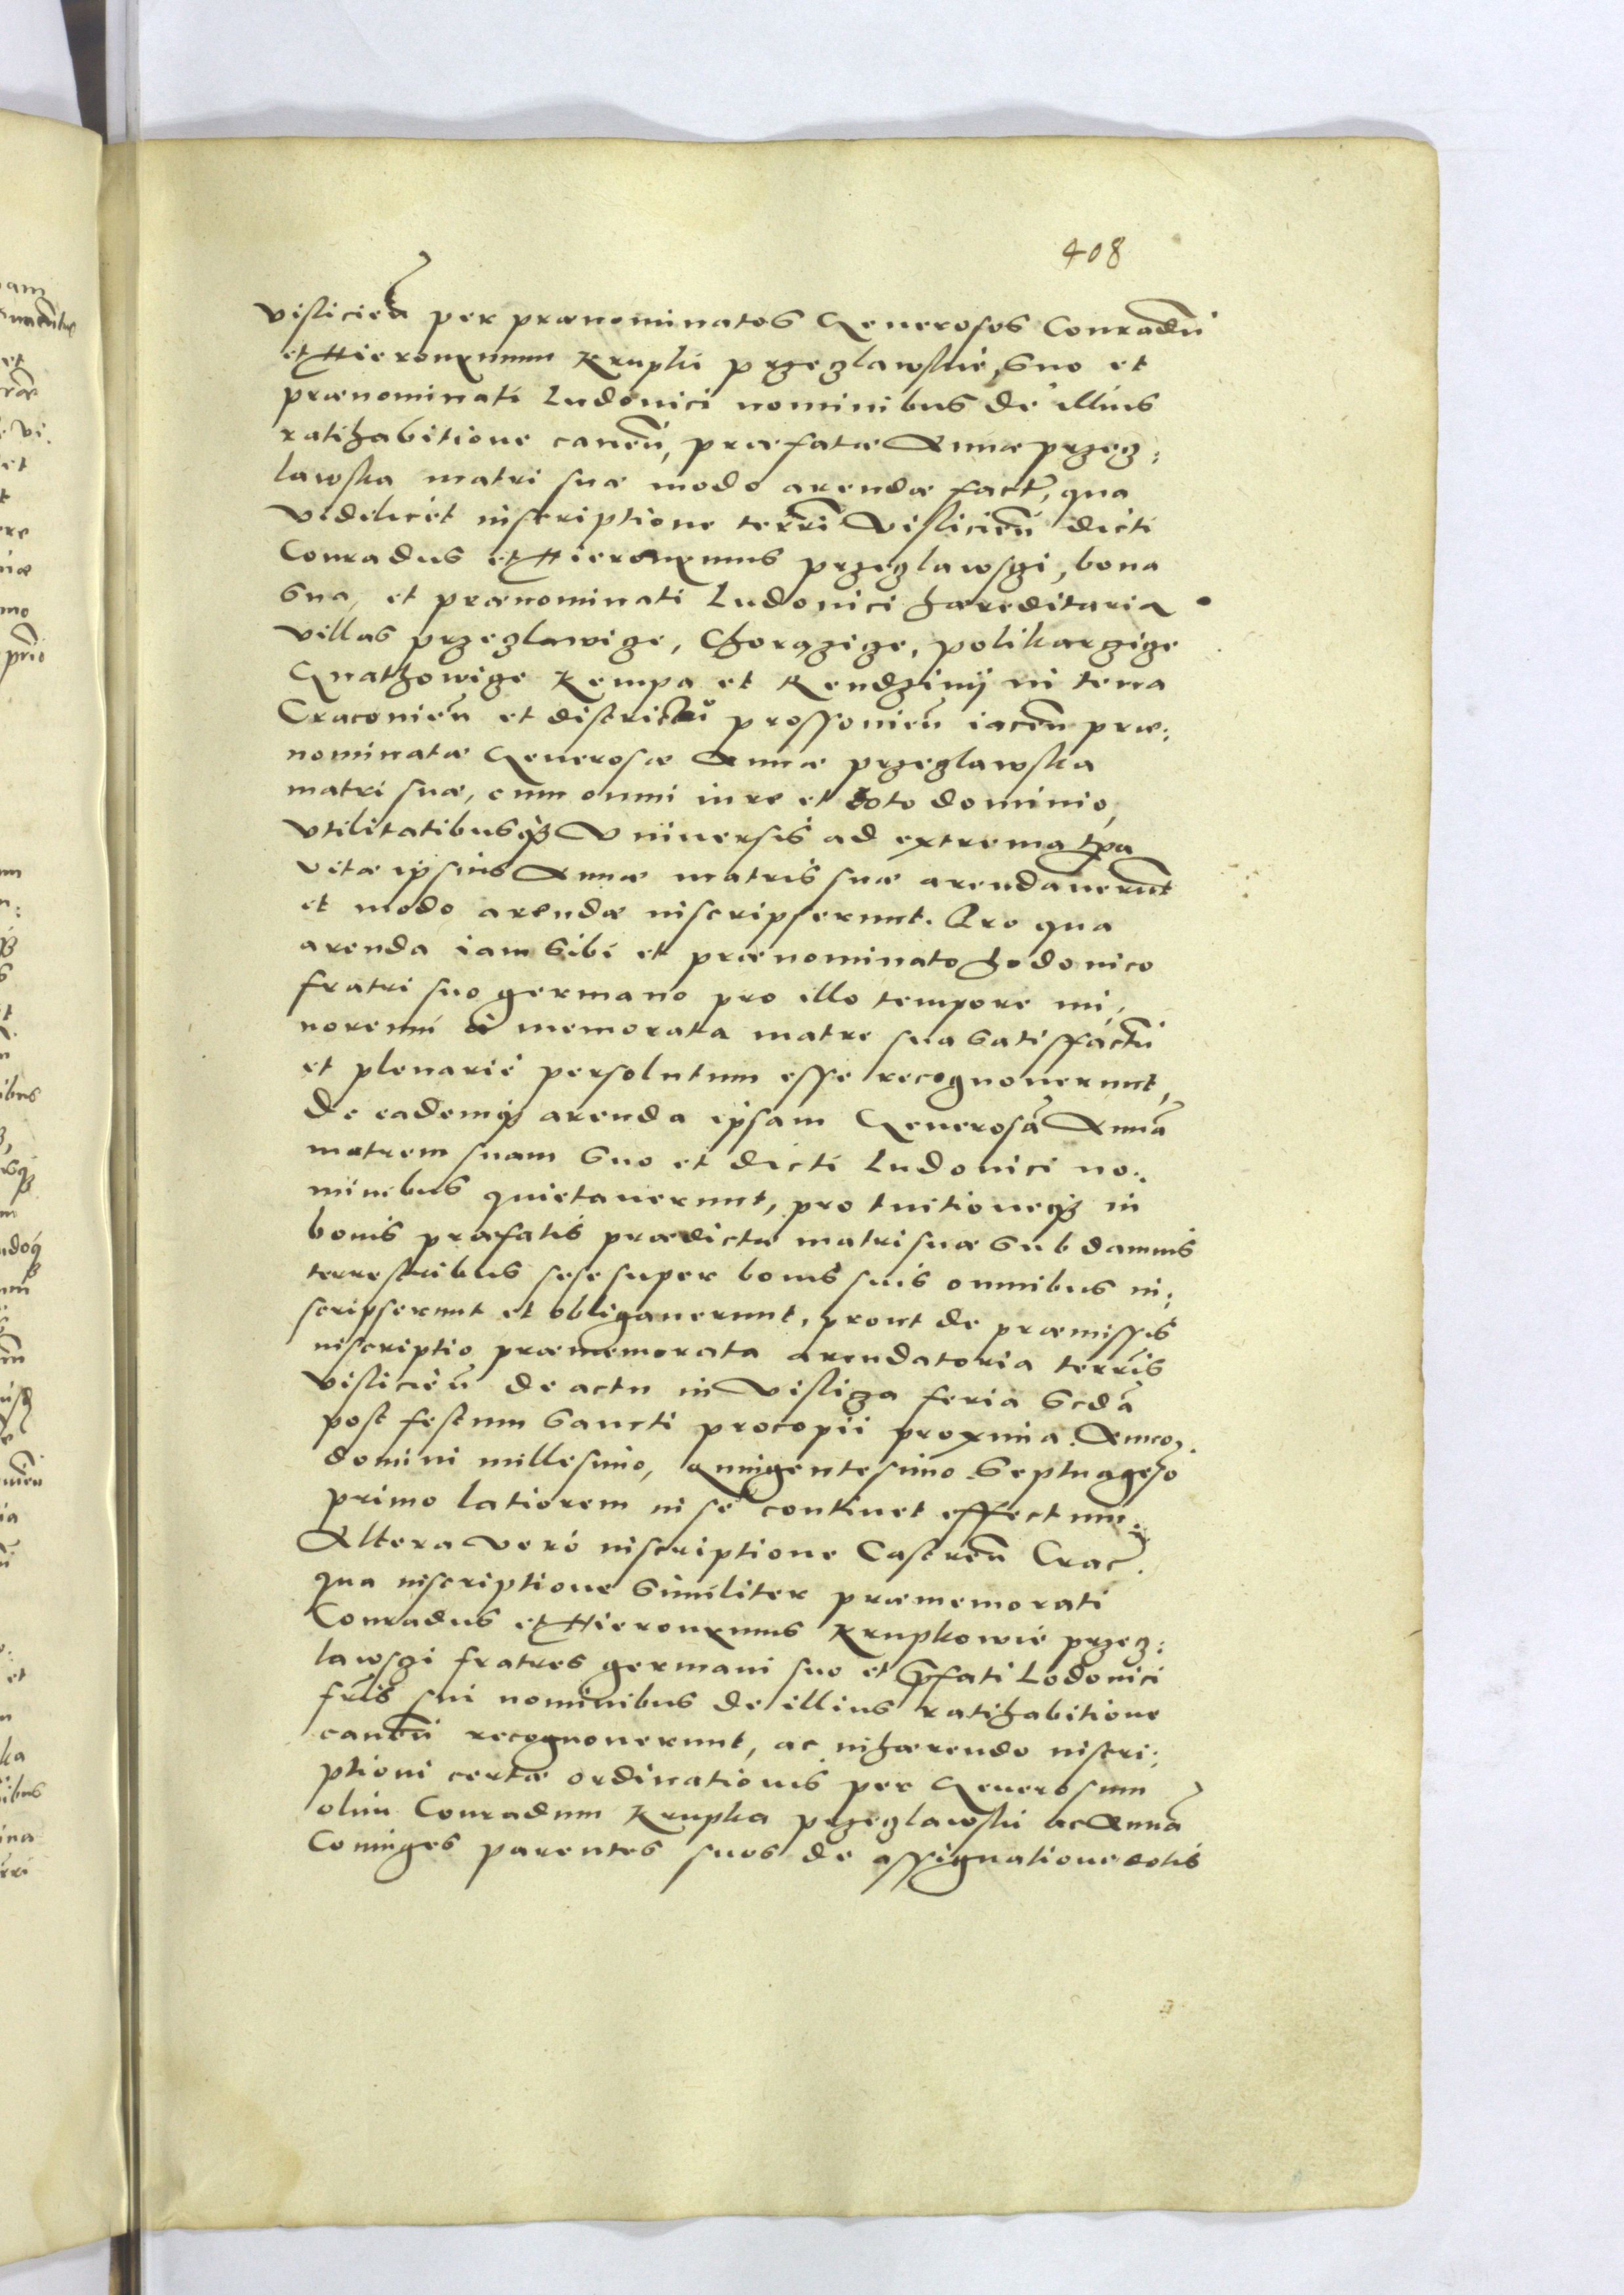 408
Visliciẽn per prænominatos Generosos Conradũ
et Hieronymum Krupki Przezlawskie, suo et
prænominati Ludouici nominibus de illius
ratihabitione cauẽn, præfatæ Annæ Przez:
lawska matri suæ modo arendæ fact̃, qua
videlicet inscriptione terrĩ Visliciẽn dicti
Conradus et Hieronymus Przezlawsczi, bona
sua, et prænominati Ludouici hæreditaria
villas Przezlawicze, Chorązicze, Polikarczicze
Gnathowicze Kempa et Kendzinij in terra
Craconieñ et districtu Prossouieñ iaceñ præ:
nominatæ Generosæ Annæ Przezlawska
matri suæ, cum omni iure et toto dominio,
vtilitatibusq̃ Vniuersis ad extrema tp̃a
vitæ ipsius Annæ matris suæ arendauerũnt
et modo arendæ inscripserunt. Pro qua
arenda iam sibi et prænominato Lodouico
fratri suo germano pro illo tempore mi,
norenni à memorata matre sua satisfactũ
et plenariè persolutum esse recognouerunt,
de eademq̃ arenda ipsam Generosã Annã
matrem suam suo et dicti Ludouici no:
minibus quietauerunt, pro tuitioneq̃ in
bonis præfatis prædictæ matri suæ sub damnis
terrestribus sese super bonis suis omnibus in:
scripserunt et obligauerunt, prout de præmissis
inscriptio præmemorata arendatoria terrĩs
Visliciẽn de actu in Vislicza feria Scdã
post festum Sancti Procopii proxima. Anno
domini millesimo, quingentesimo Septuageso
primo latiorem in se continet effectum.
Altera verò inscriptione Castreñ Crac̃.
qua inscriptione similiter præmemorati
Conradus et Hieronymus Krupkowie Przez:
lawsczi fratres germani suo et p̃fati Lodouici
fr̃is sui nominibus de illius ratihabitione
caueñ recognouerunt, ac inhærendo inscri:
ptioni certæ ordinationis per Generosum
olim Conradum Krupka Przezlawski ac Annã
Coniuges parentes suos de assignatione dotis